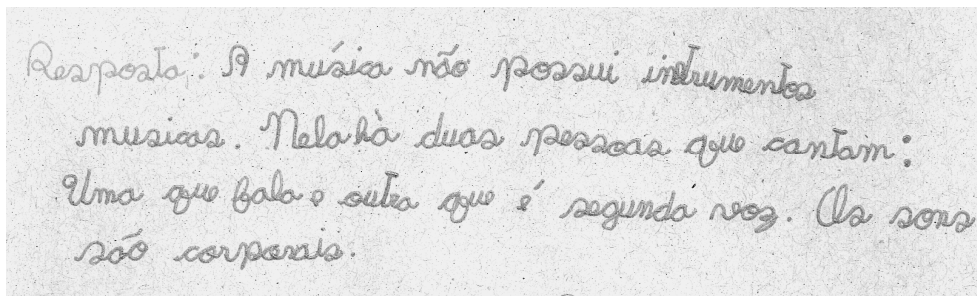 Resposta: A música não possui instrumentos
musicas. Nela hà duas pessoas que cantam:
Uma que fala e outra que é segunda voz. Os sons
são corporais.